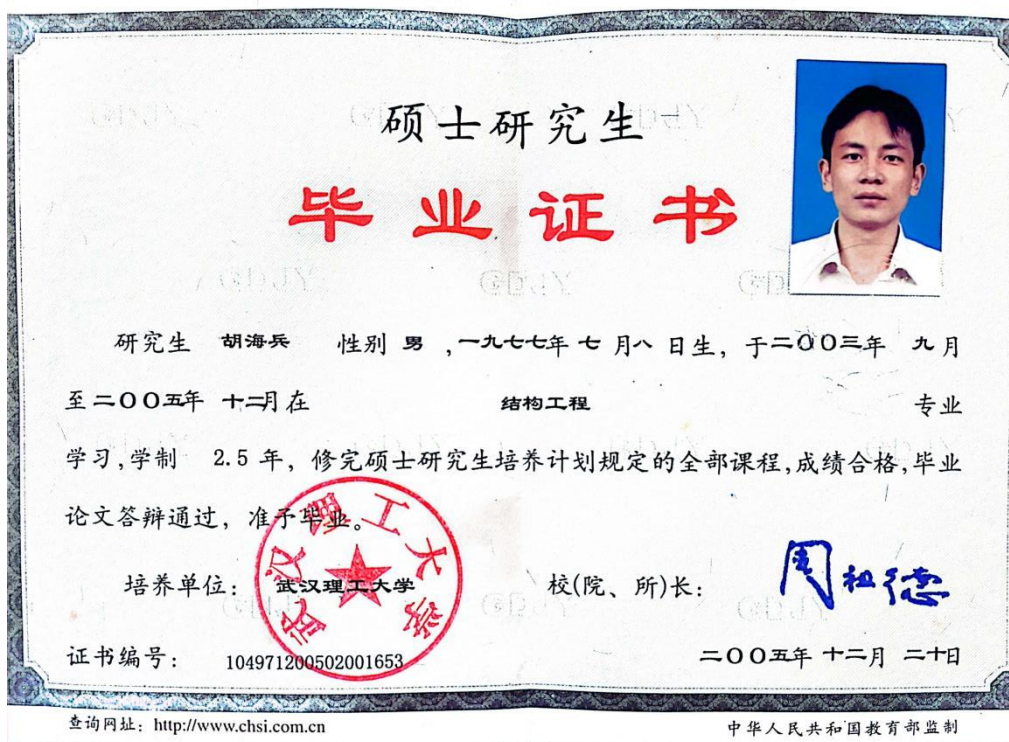 硕士研究生
毕业证书
研究生 胡海兵 性别 男 ,一九七七年 七 月八 日生, 于二〇〇三年 九月
至二〇〇五年 十二月在 结构工程 专业
学习,学制 2.5 年, 修完硕士研究生培养计划规定的全部课程,成绩合格,毕业
论文答辩通过, 准予毕业。
武汉理工大学
培养单位: 武汉理工大学 校(院、所)长: 周祖德
证书编号: 104971200502001653 二〇〇五年 十二月 二十日
查询网址: http://www.chsi.com.cn 中华人民共和国教育部监制